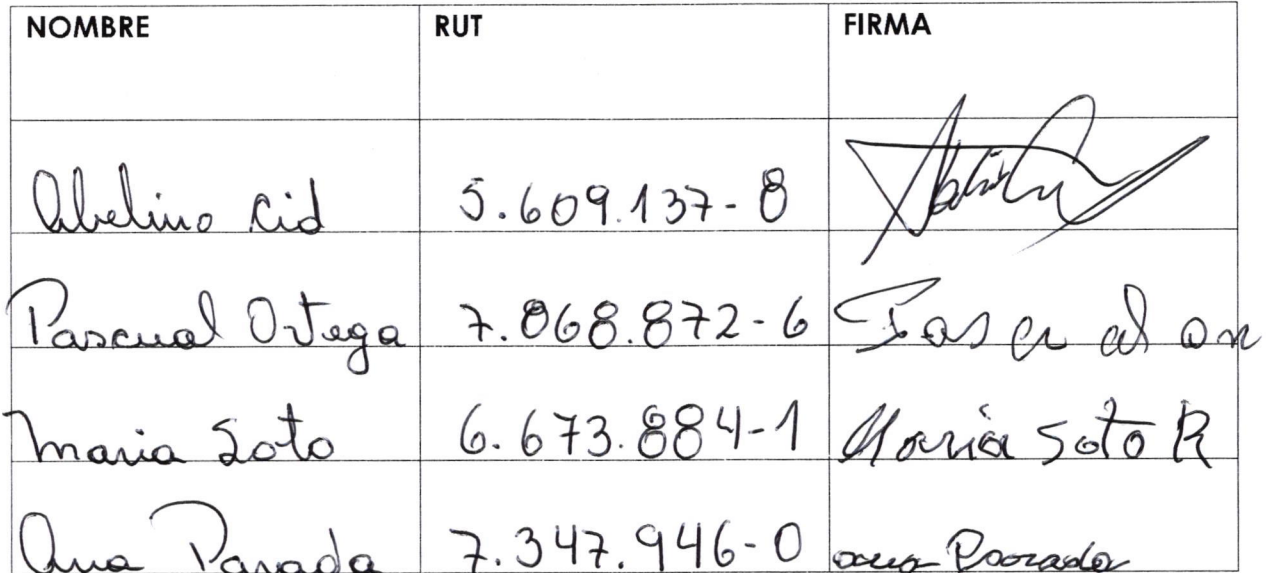 NOMBRE RUT FIRMA
Abelino Cid 5.609.137-8
Pascual Ortega 7.068.872-6 Pascual or
Maria Soto 6.673.884-1 Maria Soto R
Ana Parada 7.347.946-0 ana Parada